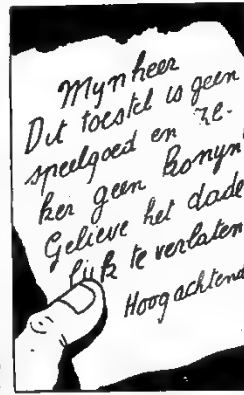 Mynheer
Dit toestel is geen
speelgoed en ze-
ker geen konyn!
Gelieve het dade
lijk te verlaten
Hoogachtend